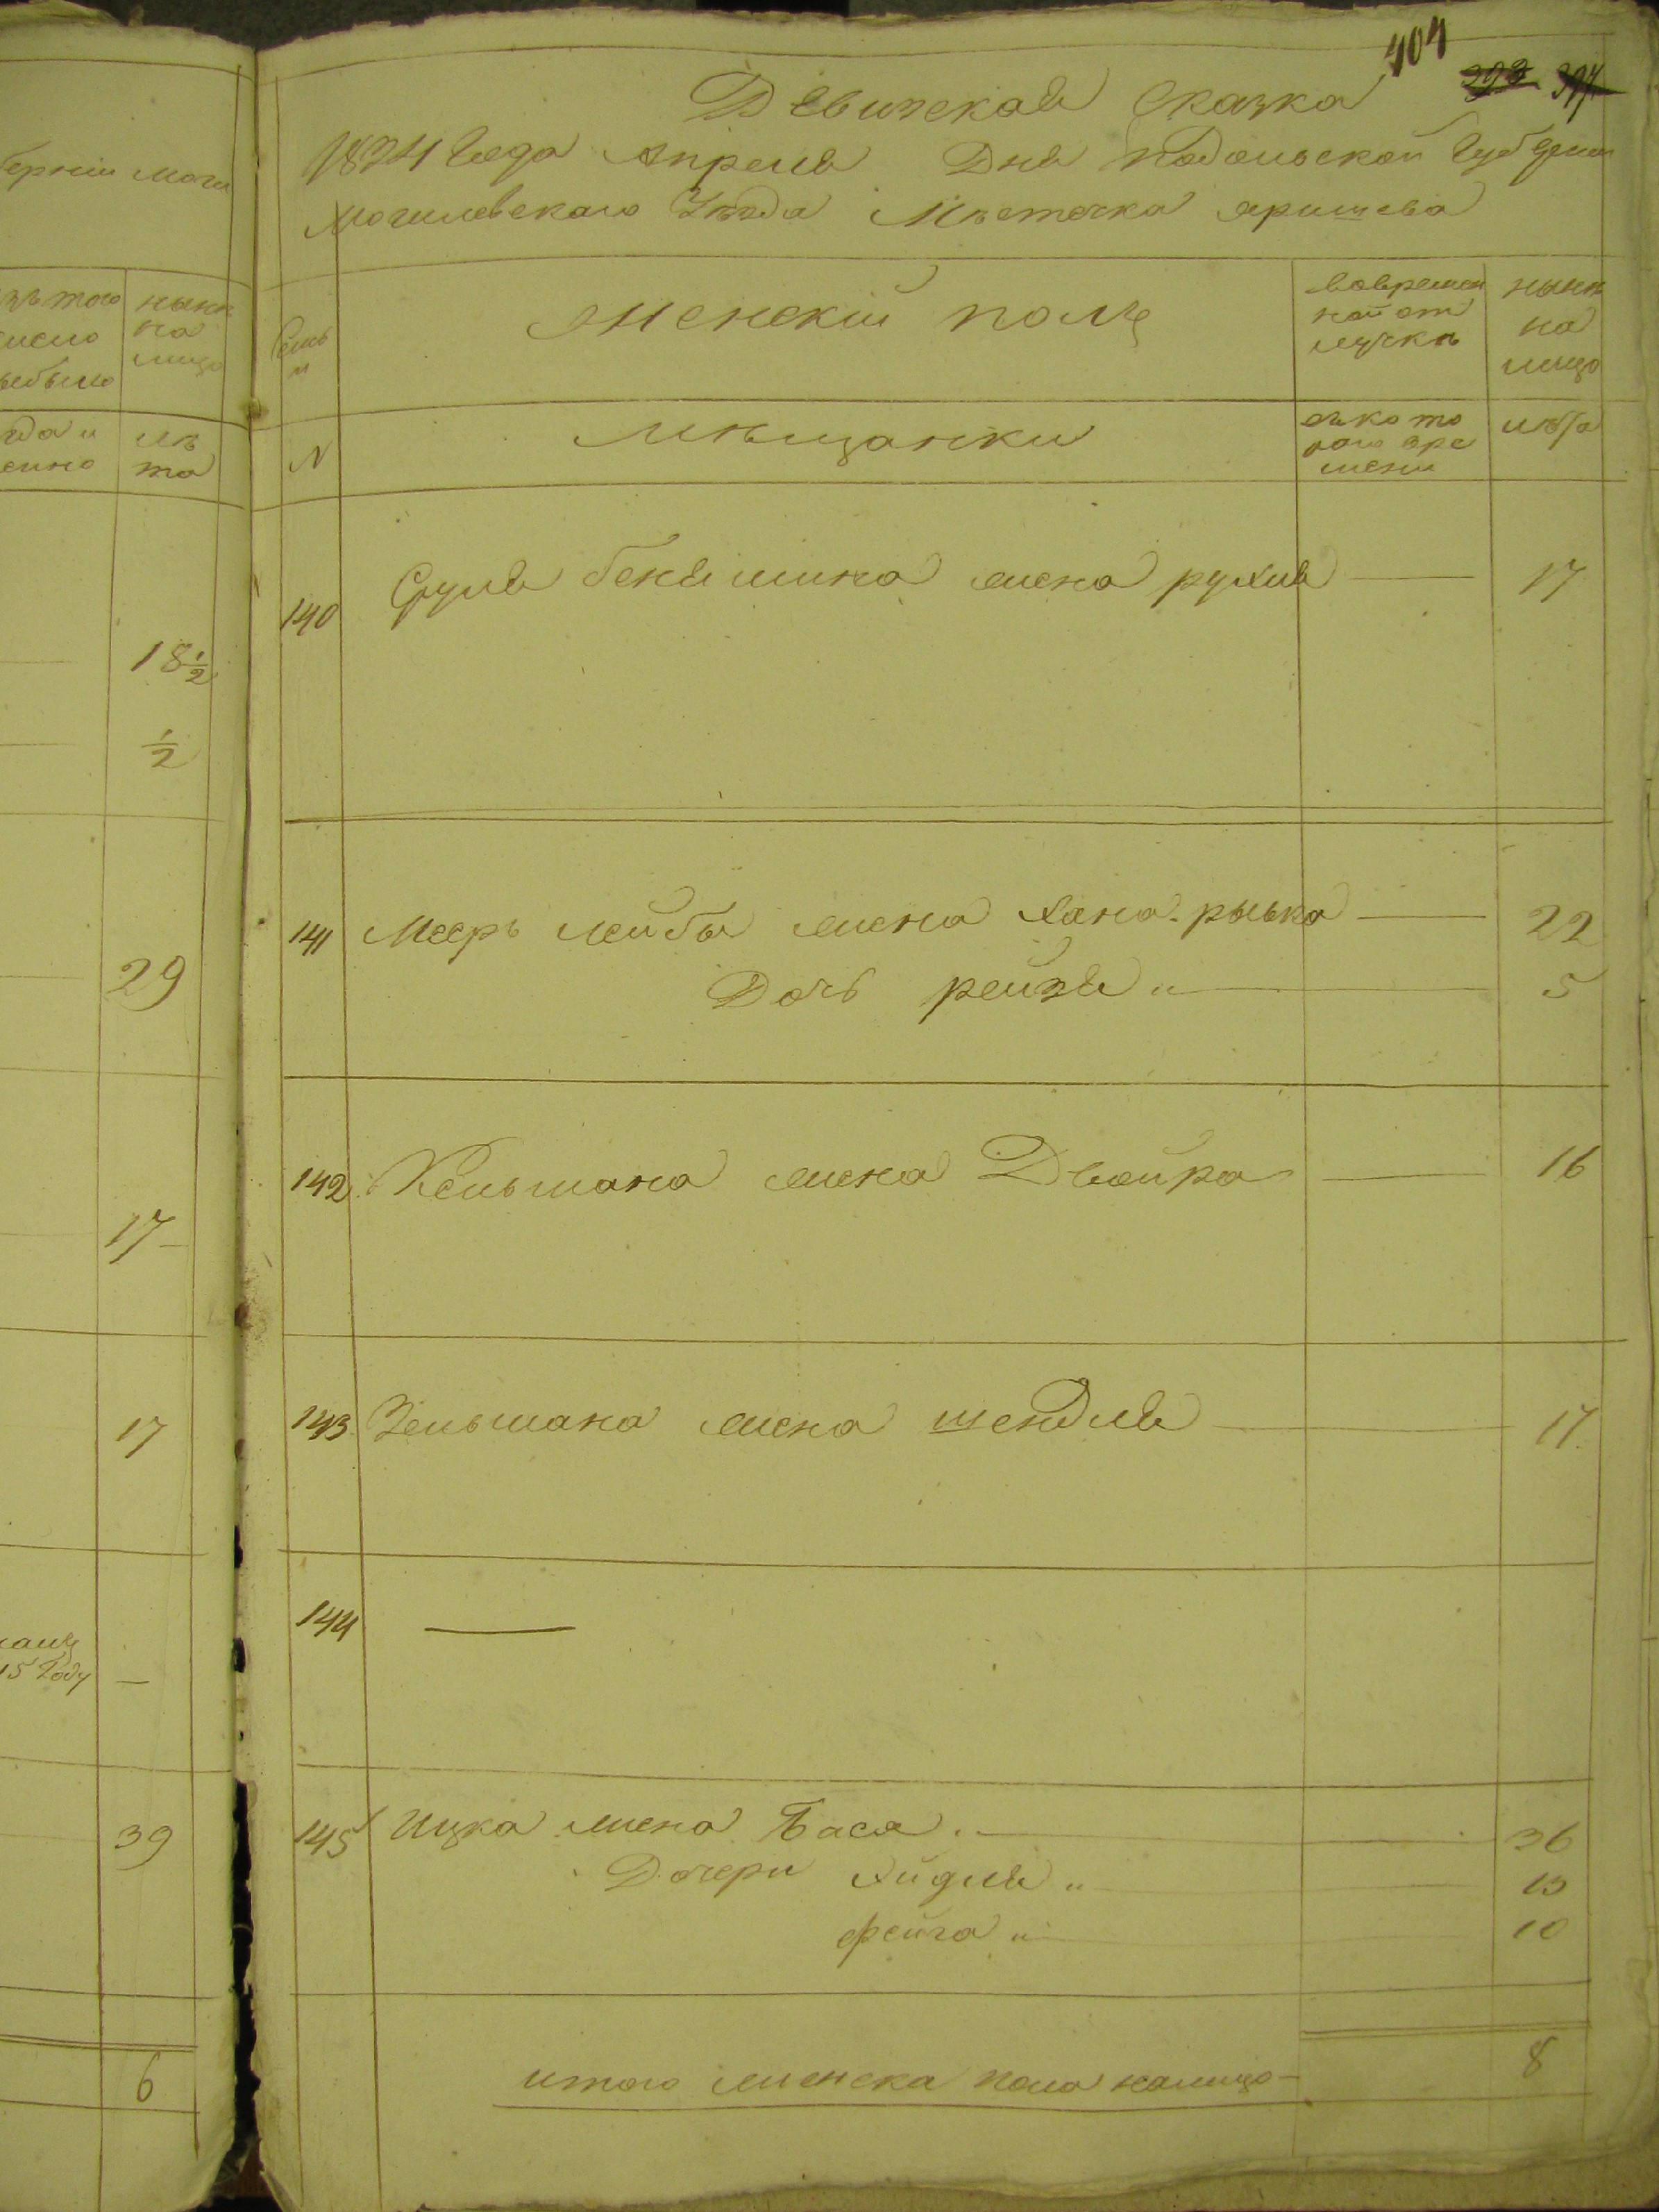 404
393 394
Ревизская Сказка
1824 Года Апреля Дня Подольской Губернии
Могилевскаго Уезда Местечка яришева
Семьи
женскій полъ
вовременной отлучке
ныне на лицо
N
мещанки
съ кото
раго вре
мени
лета
140 Сруля беняшина жена рухля — 17
141 Меерь лейбы жена хана-рывка — 22
Дочь рейзя „ — 5
142 Кельмана жена Двойра — 16
143 Зельмана жена шендля — 17
144 —
145 Ицка жена Бася. — 36
Дочери хидля „ — 13
фейга „ — 10
итого женска пола налицо — 8
берніи моги
того
число
выбыло
ныне
на
лицо
года и
ле
та
18 1/2
1/2
29
17
17
15 Году —
39
6